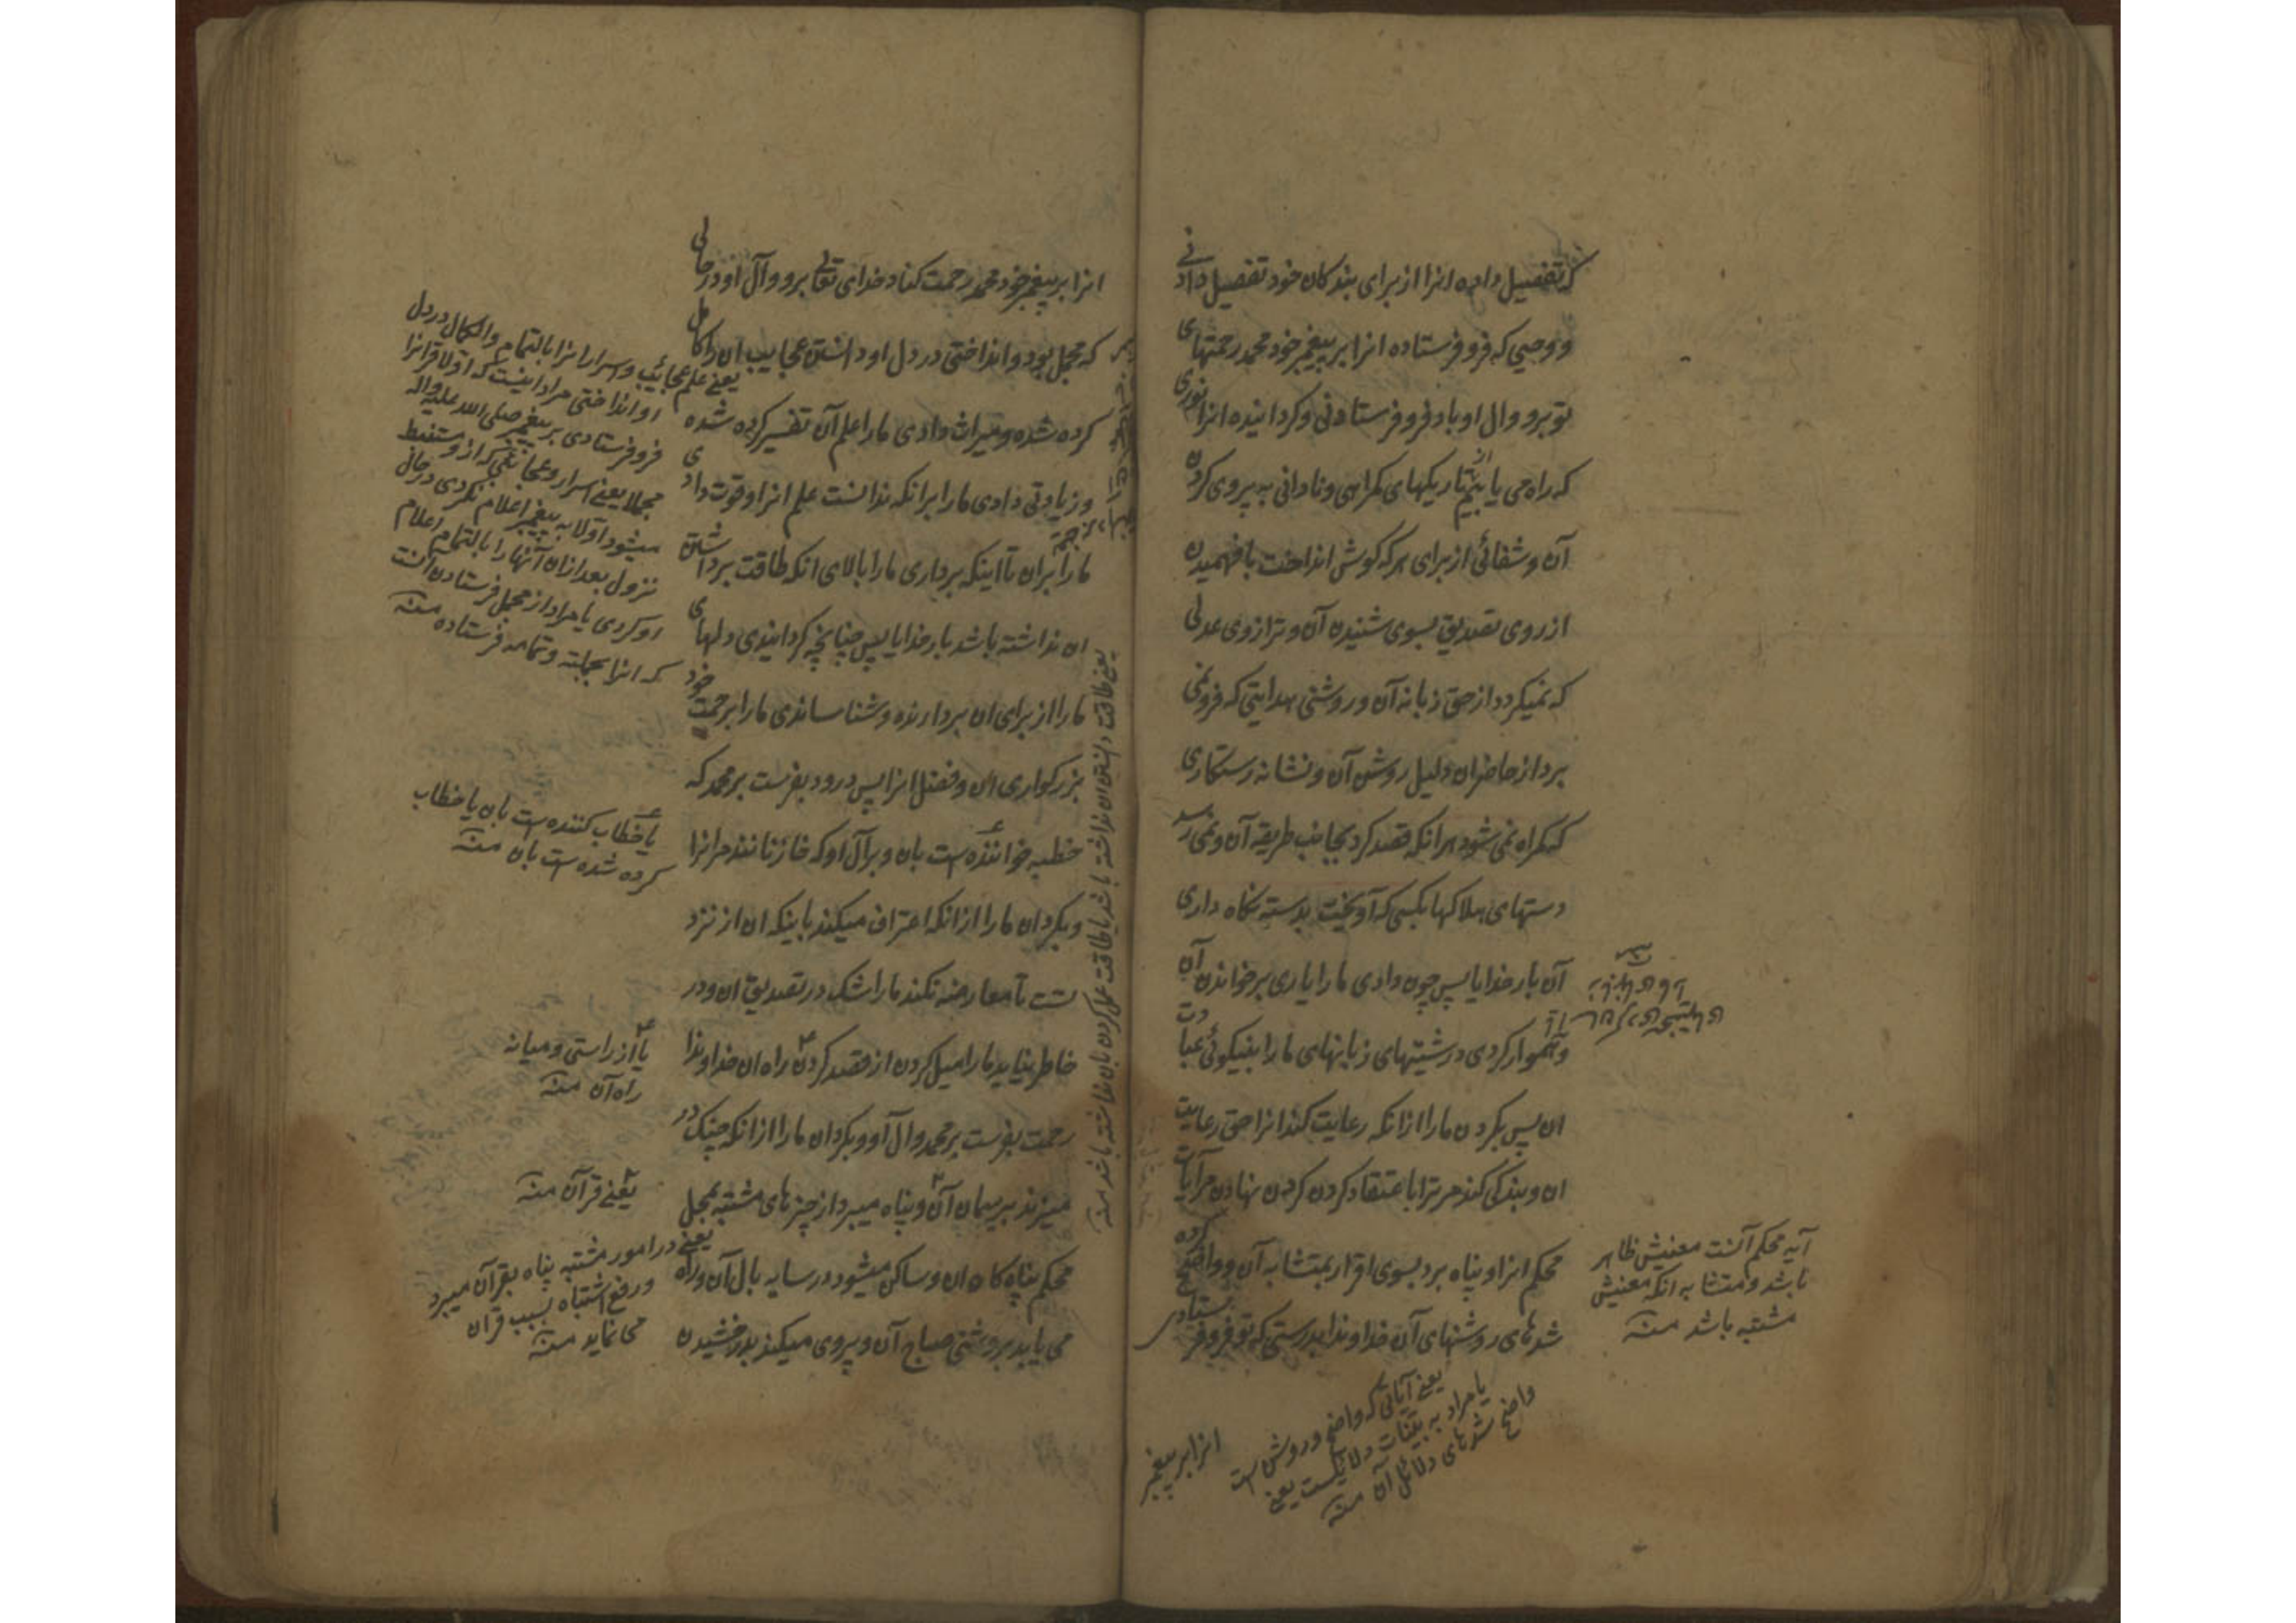 که تفصیل داده انرا از برای بندکان خود تفصیل دادنی
و وحیی که فرو فرستاده انرا بر پیغمبر خود محمد رحمتهای
تو برو وال او باد فرو فرستادنی و کردانیده انرا نوری
که راه می یابیم از تاریکهای کمراهی و نادانی به پیروی کردن
آن و شفائی از برای هر که کوش انداخت بافهمیدن
از روی تصدیق بسوی شنیدن آن و ترازوی عدلی
که نمیکردد از حق زبانه آن و روشنی هدایتی که فرو نمی
برد از حاضران دلیل روشن آن و نشانه رستکاری
که کمراه نمی شود هر انکه قصد کرد بجانب طریقه آن و نمی رسد
دستهای هلاکها بکسی که آویخت بدسته نکاه داری
آن بار خدایا پس چون دادی ما را یاری بر خواندن آن
و هموار کردی درشتیهای زبانهای ما را بنیکوئی عبادت
ان پس بکردن ما را از انکه رعایت کند انرا حق رعایت
ان و بندکی کند مر ترا باعتقاد کردن کردن نهادن مر آیات
محکم انرا و پناه برد بسوی اقرار بمتشابه آن و واضح کرده
شدهای روشنهای آن خداوندا بدرستی که تو فرو فرستادی
آیه محکم آنست معنیش ظاهر
باشد و متشابه انکه معنیش
مشتبه باشد منه
یعنی آیاتی که واضح و روشن است
یا مراد به بینات دلایلست یعنی
واضح شدهای دلائل آن منه
انرا بر پیغمبر
انرا بر پیغمبر خود محمد رحمت کناد خدای تعالی برو وآل او در حالی
که مجمل بود و انداختی در دل او دانستن عجایب ان را کامل
کرده شده و میراث دادی ما را علم آن تفسیر کرده شده
و زیادتی دادی ما را بر انکه ندانست علم انرا و قوت دادی
ما را بران تا اینکه برداری ما را بالای انکه طاقت برداشتن
ان نداشته باشد بار خدایا پس چنانچه کردانیدی دلهای
ما را از برای ان بردارنده و شناساندی ما را برحمت خود
بزرکواری ان و فضل انرا پس درود بفرست بر محمد که
خطبه خواننده است بان و بر آل او که خازنانند مر انرا
و بکردان ما را از انکه اعتراف میکند باینکه ان از نزد
تست تا معارضه نکند ما را شک در تصدیق ان و در
خاطر نیاید ما را میل کردن از قصد کردن راه ان خداوندا
رحمت بفرست بر محمد وال او و بکردان ما را از انکه چنک در
میزند بریسمان آن و پناه میبرد از چیزهای مشتبه بمحل
محکم پناه کاه ان و ساکن میشود در سایه بال آن و راه
می یابد بروشنی صباح آن و پیروی میکند بدرخشیدن
یعنی علم عجائب و اسرار انرا بالتمام والکمال در دل
او انداختی مراد اینست که اولا قرانرا
فرو فرستادی بر پیغمبر صلی الله علیه واله
مجملا یعنی اسرار و عجائبی که ازو مستنبط
میشود اولا به پیغمبر اعلام نکردی در حال
نزول بعد ازان آنها را بالتمام اعلام
او کردی یا مراد از مجمل فرستادن آنست
که انرا بجملته و تمامه فرستاده منه
یعنی طاقت دانستن ان نداشته باشد یا طاقت عمل کردن بان نداشته باشد منه
یا خطاب کننده است بان یا خطاب
کرده شده است بان منه
یا از راستی و میانه
راه آن منه
یعنی قرآن منه
یعنی در امور مشتبه پناه بقرآن میبرد
و رفع اشتباه بسبب قران
می نماید منه